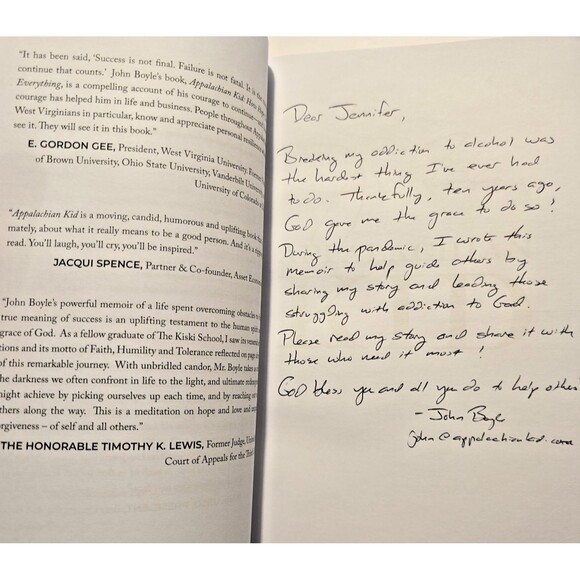 "It has been said, 'Success is not final. Failure is not fatal. It is the
continue that counts.' John Boyle's book, Appalachian Kid: How
Everything, is a compelling account of his courage to continue
courage has helped him in life and business. People throughout
West Virginians in particular, know and appreciate personal
see it. They will see it in this book."
E. GORDON GEE, President, West Virginia University, Former
of Brown University, Ohio State University, Vanderbilt University
University of Colorado
"Appalachian Kid is a moving, candid, humorous and uplifting book
mately, about what it really means to be a good person. And it's a
read. You'll laugh, you'll cry, you'll be inspired."
JACQUI SPENCE, Partner & Co-founder, Asset
"John Boyle's powerful memoir of a life spent overcoming obstacles
true meaning of success is an uplifting testament to the human
grace of God. As a fellow graduate of The Kiski School, I saw its
tions and its motto of Faith, Humility and Tolerance reflected on
of this remarkable journey. With unbridled candor, Mr. Boyle takes
the darkness we often confront in life to the light, and ultimate
might achieve by picking ourselves up each time, and by reaching
others along the way. This is a meditation on hope and love and
orgiveness – of self and all others."
THE HONORABLE TIMOTHY K. LEWIS, Former Judge,
Court of Appeals for the
Dear Jennifer,
Breaking my addiction to alcohol was
the hardest thing I've ever had
to do. Thankfully, ten years ago,
God gave me the grace to do so!
During the pandemic, I wrote this
memoir to help guide others by
sharing my story and leading those
struggling with addiction to God.
Please read my story and share it with
those who need it most!
God bless you and all you do to help others!
- John Boyle
john@appalachiankid.com